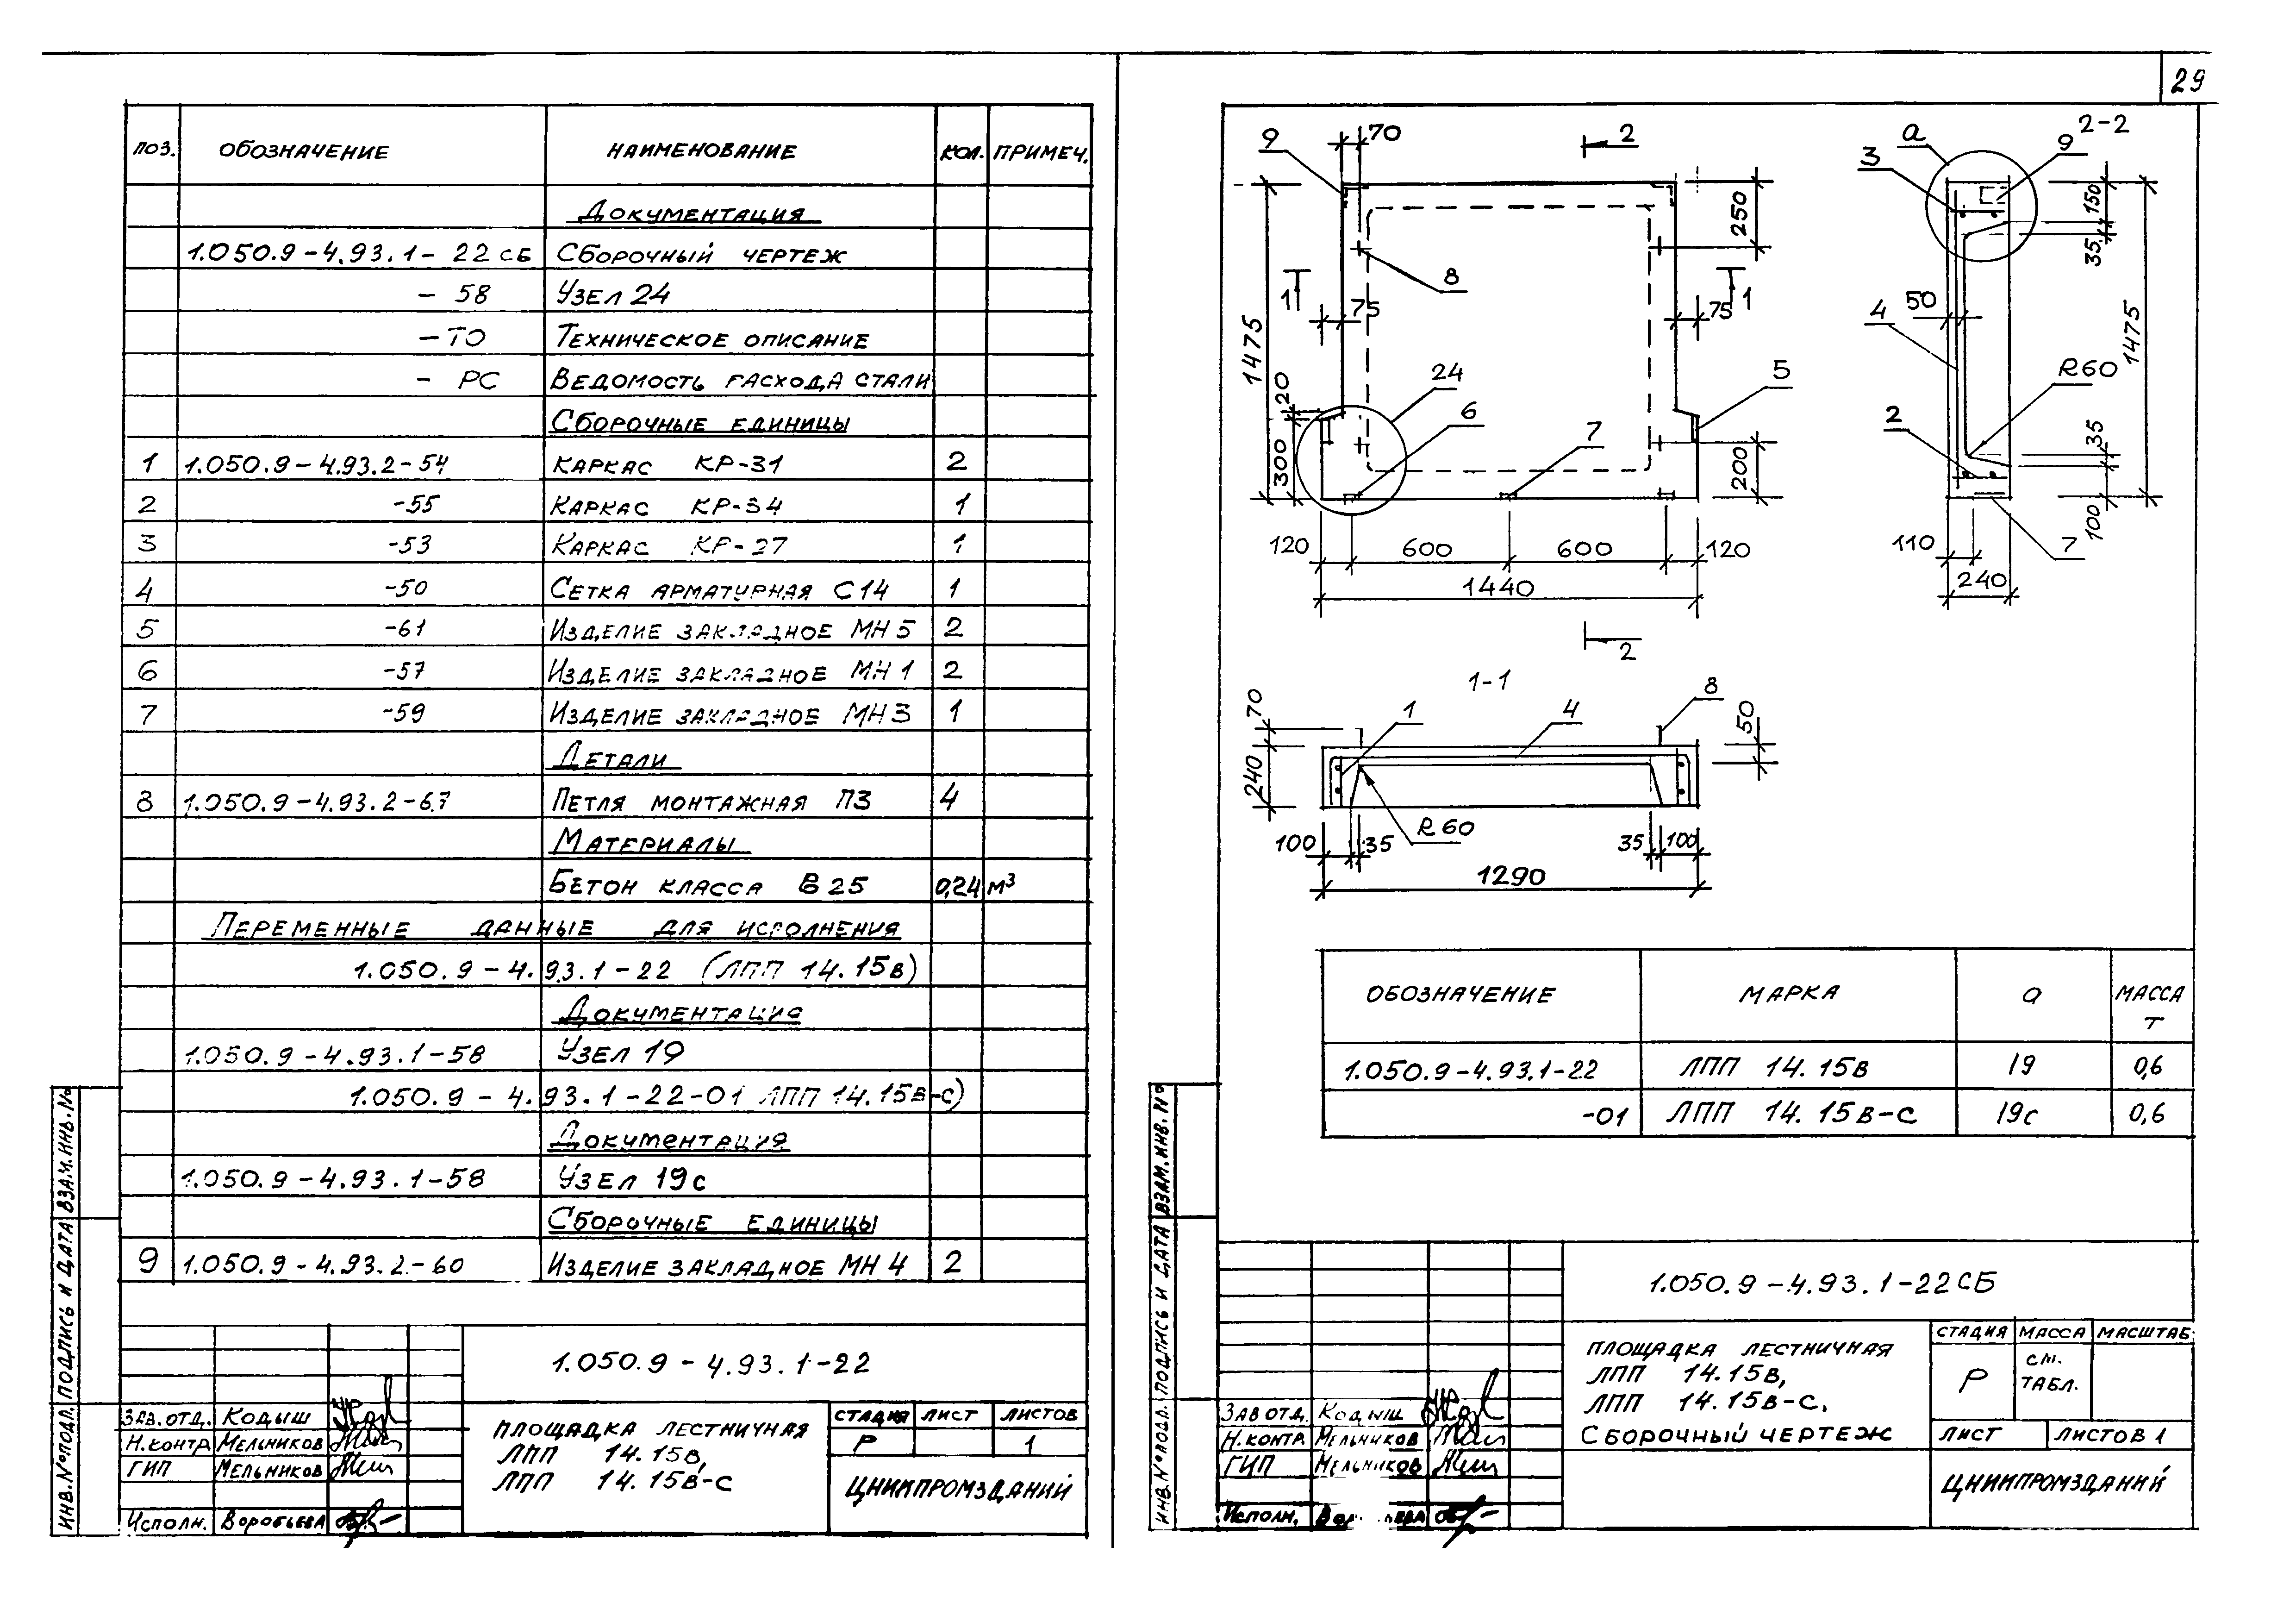 29
ПОЗ. ОБОЗНАЧЕНИЕ НАИМЕНОВАНИЕ КОЛ. ПРИМЕЧ.
ДОКУМЕНТАЦИЯ
1.050.9-4.93.1-22СБ СБОРОЧНЫЙ ЧЕРТЕЖ
-58 УЗЕЛ 24
-ТО ТЕХНИЧЕСКОЕ ОПИСАНИЕ
-РС ВЕДОМОСТЬ РАСХОДА СТАЛИ
СБОРОЧНЫЕ ЕДИНИЦЫ
1 1.050.9-4.93.2-54 КАРКАС КР-31 2
2 -55 КАРКАС КР-34 1
3 -53 КАРКАС КР-27 1
4 -50 СЕТКА АРМАТУРНАЯ С14 1
5 -61 ИЗДЕЛИЕ ЗАКЛАДНОЕ МН5 2
6 -57 ИЗДЕЛИЕ ЗАКЛАДНОЕ МН1 2
7 -59 ИЗДЕЛИЕ ЗАКЛАДНОЕ МН3 1
ДЕТАЛИ
8 1.050.9-4.93.2-67 ПЕТЛЯ МОНТАЖНАЯ П3 4
МАТЕРИАЛЫ
БЕТОН КЛАССА В25 0,24 м³
ПЕРЕМЕННЫЕ ДАННЫЕ ДЛЯ ИСПОЛНЕНИЯ
1.050.9-4.93.1-22 (ЛПП 14.15в)
ДОКУМЕНТАЦИЯ
1.050.9-4.93.1-58 УЗЕЛ 19
1.050.9-4.93.1-22-01 ЛПП 14.15в-с)
ДОКУМЕНТАЦИЯ
1.050.9-4.93.1-58 УЗЕЛ 19с
СБОРОЧНЫЕ ЕДИНИЦЫ
9 1.050.9-4.93.2-60 ИЗДЕЛИЕ ЗАКЛАДНОЕ МН4 2
ИНВ.№ПОДЛ. ПОДПИСЬ И ДАТА ВЗАМ.ИНВ.№
1.050.9-4.93.1-22
ЗАВ.ОТД. КОДЫШ
Н.КОНТР МЕЛЬНИКОВ
ГИП МЕЛЬНИКОВ
ИСПОЛН. ВОРОБЬЕВА
ПЛОЩАДКА ЛЕСТНИЧНАЯ
ЛПП 14.15в,
ЛПП 14.15в-с
СТАДИЯ ЛИСТ ЛИСТОВ
Р 1
ЦНИИПРОМЗДАНИЙ
9 70 2
1475
8
250
1 75 75 1
24
6
7
5
20
300
200
120 600 600 120
1440
2
2-2
а
3 9
150
35
50
4
1475
R60
2
35
100
110
7
240
1-1
70
1 4 8
50
240
R60
100 35 35 100
1290
ОБОЗНАЧЕНИЕ МАРКА а МАССА
Т
1.050.9-4.93.1-22 ЛПП 14.15в 19 0,6
-01 ЛПП 14.15в-с 19с 0,6
ИНВ.№ПОДЛ. ПОДПИСЬ И ДАТА ВЗАМ.ИНВ.№
1.050.9-4.93.1-22СБ
ЗАВ ОТД. КОДЫШ
Н.КОНТР МЕЛЬНИКОВ
ГИП МЕЛЬНИКОВ
ИСПОЛН.
ПЛОЩАДКА ЛЕСТНИЧНАЯ
ЛПП 14.15в,
ЛПП 14.15в-с.
СБОРОЧНЫЙ ЧЕРТЕЖ
СТАДИЯ МАССА МАСШТАБ
Р СМ.
ТАБЛ.
ЛИСТ ЛИСТОВ 1
ЦНИИПРОМЗДАНИЙ